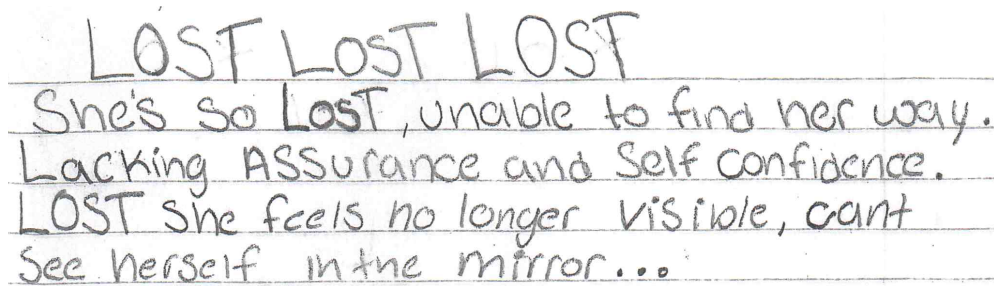 LOST LOST LOST
She's so LOST, unable to find her way.
Lacking ASSurance and Self confidence.
LOST She feels no longer visible, cant
See herself in the mirror...